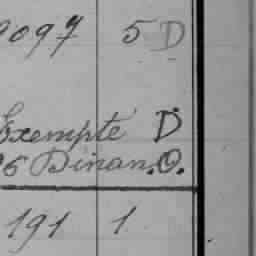 9097 5 D
Exempté D
26 Dinan.O.
191 1